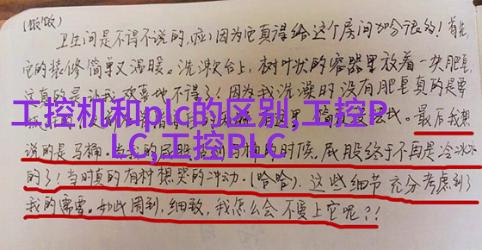 (嗷嗷)
卫生间是不得不说的，啦！因为它真得给这个房间加分很多！首先
它的装修简单又温暖。洗漱台上，树叶状的容器里放着一块肥皂
这真的是让我欢喜地不得了！因为我洗澡时没有肥皂真的是
工控机和plc的区别,工控P
LC,工控PLC
最后我想
说的是马桶。当我的屁股 马桶的时候，屁股终于不再是冷冰冰
的了！当时真的有种想哭的冲动。(哈哈)。这些细节充分考虑到了
我的需要。如此周到，细致，我怎么会不爱上它呢？！